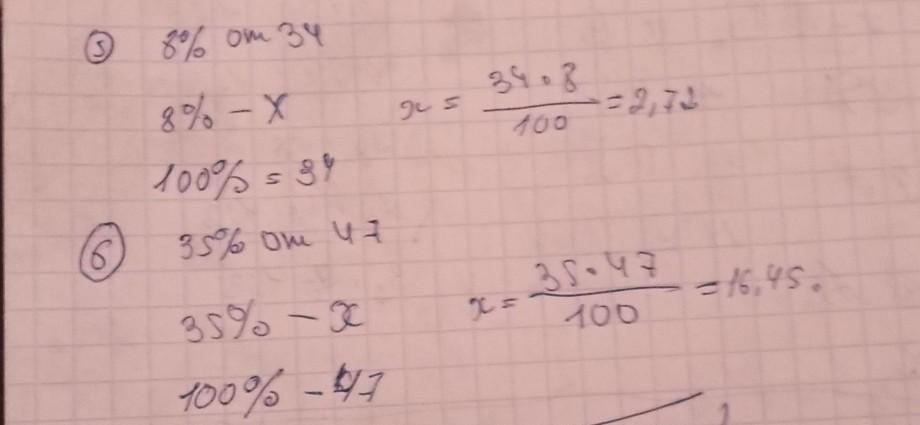 5 8% от 34
8% – x x = 34 · 8 / 100 = 2,72
100% = 34
6 35% от 47
35% – x x = 35 · 47 / 100 = 16,45.
100% – 47